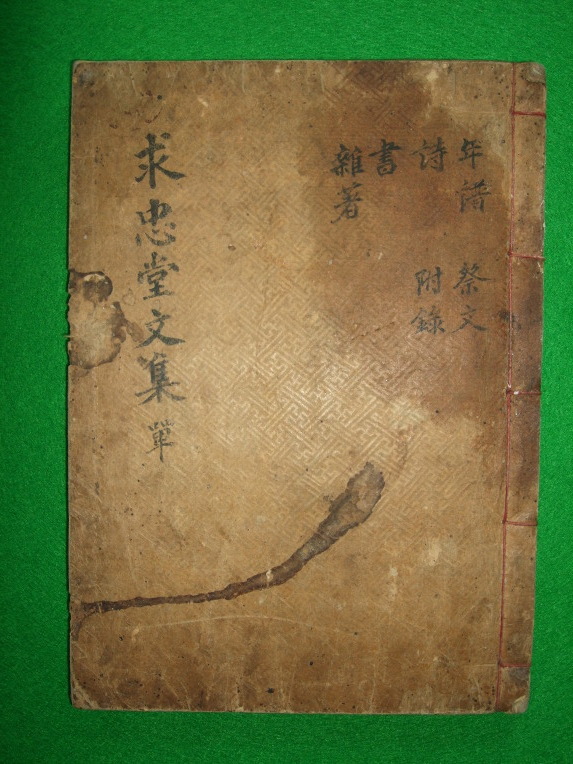 年譜 祭文
詩 附錄
書
雜著
求忠堂文集 單